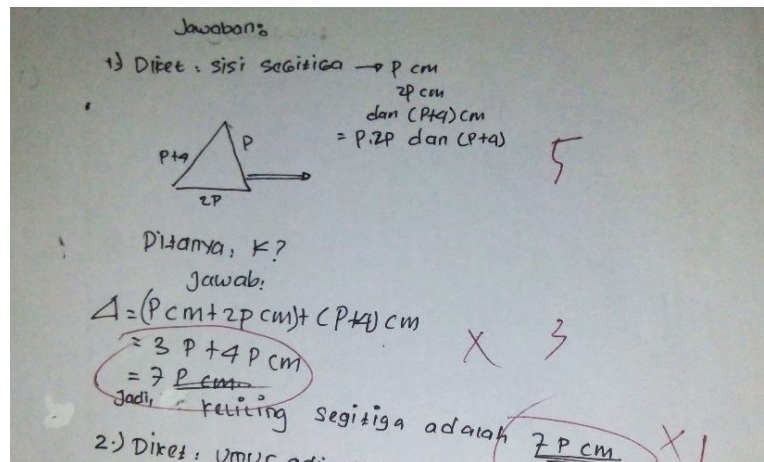 Jawaban:
1) Diket : sisi segitiga → P cm
2P cm
dan (P+4) cm
= P.2P dan (P+4)
P+4
P
2P
5
Ditanya, K?
Jawab:
Δ = (P cm + 2P cm) + (P+4) cm
= 3 P + 4 P cm
= 7 P cm
X 3
Jadi, keliling segitiga adalah 7 P cm
X 1
2.) Diket : umur adi